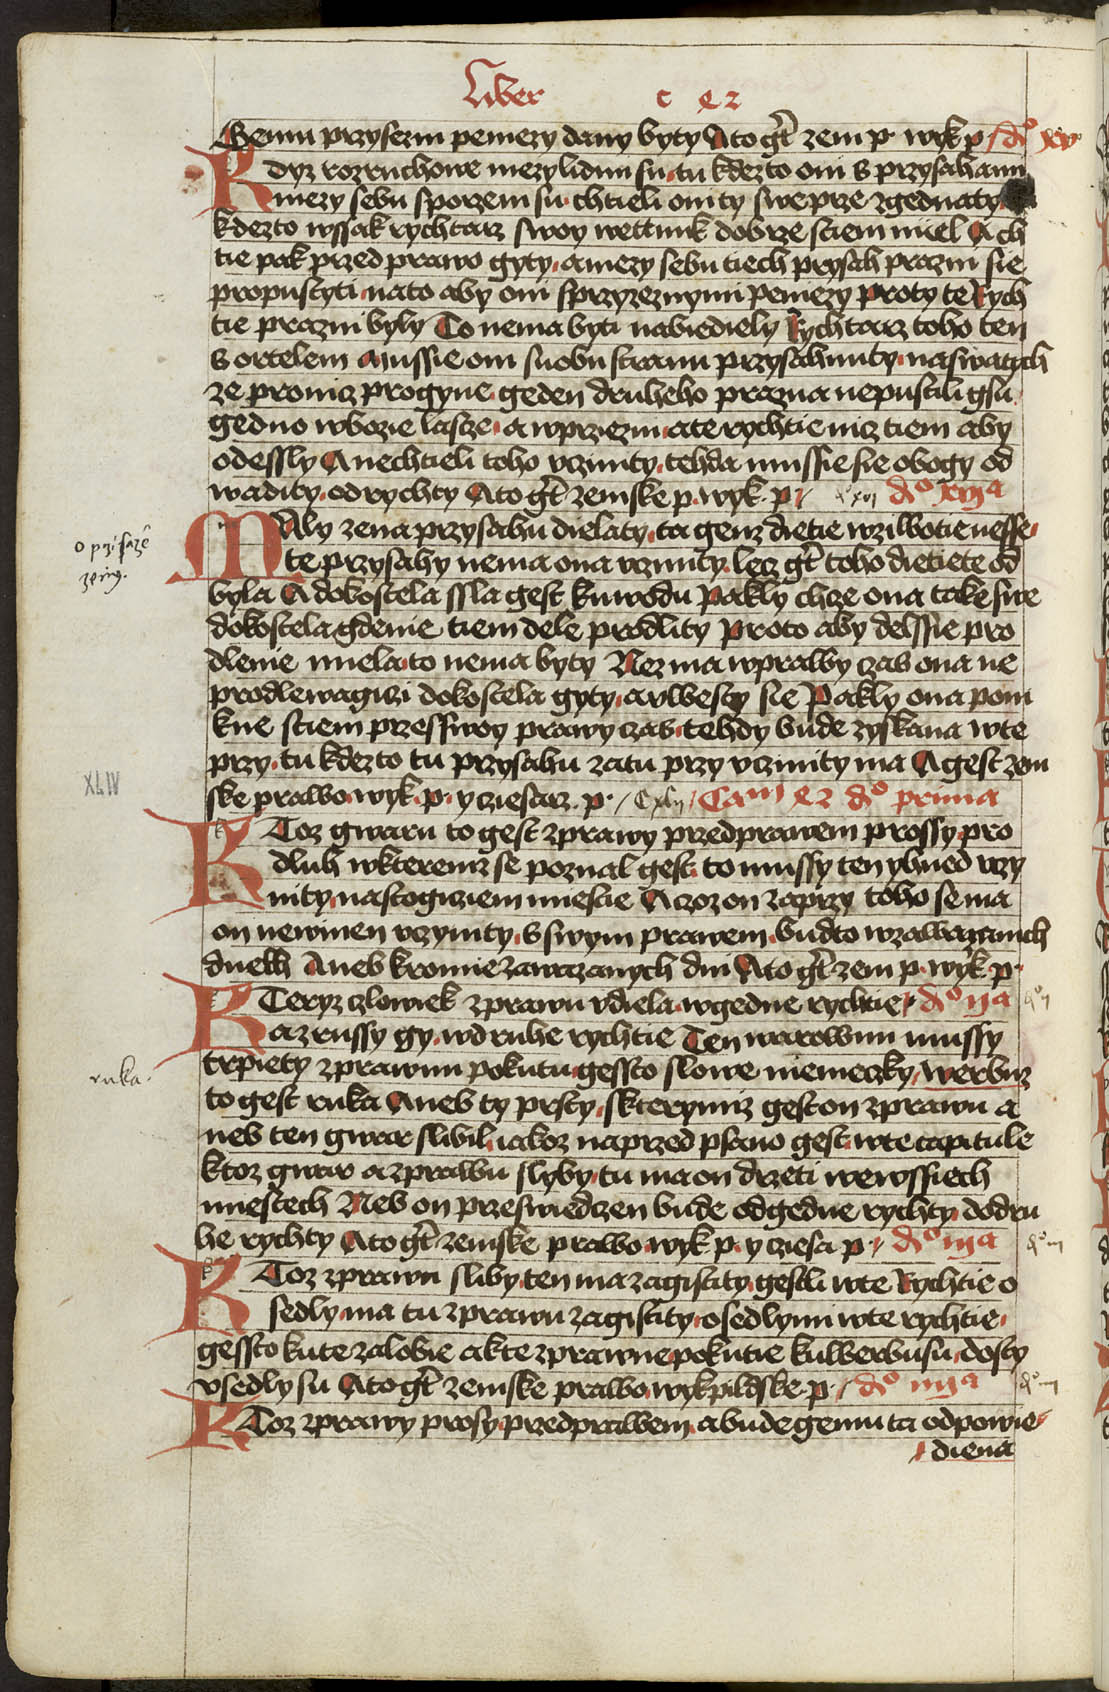 Liber c xl2
Gemu przysezni peniezy dany byty A to gt zem p wyk p / do xv
Kdyz rozruchowe mezy lidmi su tu kdezto oni s przysahami
mezy sebu sporzeni su chtieli oni ty swe prze zgednaty
kdezto wssak rychtarz swoy wettunk dobrze sciem miel A ch
tie pak przed prawo gyty a mezy sebu tiech prysah prazni sie
propustyti na to aby oni s pryzeznymi peniezy proty te Rych
tie prazni byly To nema byti nabiediely Rychtarz toho ten
s ortelem mussie oni s uobu stranu przysahnuty na swatych
ze pro nicz pro gyne geden druheho prazna nepustili gsu
gedno w bozie lasze a w przyezni a te rychtie nicz tiem aby
odessly A nechtieli toho vczinity tehda mussie sie obogy od
wadity od rychty A to gt zemske p wyk p / do xvi do xvia
Maly zena przysahu dielaty ta genz dietie w ziwotie nesse
te przysahy nema ona vczinity lecz gt toho dietiete od
byla A do kostela ssla gest k uwodu Pakly chze ona take swe
do kostela gdenie tiem dele prodlity proto aby delssie pro
dlenie miela to nema byty Nez ma w prawy czas ona ne
prodlewagiczi do kostela gyty a uwesty sie Pakly ona pom
kne sciem przes swoy prawy czas tehdy bude zyskana w te
przy tu kdezto tu przysahu za tu przy vczinity ma A gest zem
ske prawo wyk p y cziesarz p / Cxlii / Cam xl2 do prima
Ktoz gwaru to gest zprawy przed prawem prossy pro
dluh w kteremz se poznal gest to mussy ten yhned vczy
nity na stogiciem miestie A czoz on zaprzy toho se ma
on newinen vczynity s swym prawem budto w zawazanich
dnech A neb kromie zawazanych dni A to gt zem p wyk p
Kteryz czlowiek zprawu vdiela w gedne rychtie / do iia do ii
a zrussy gy w druhe rychtie Ten warowani mussy
trpiety zprawnu pokutu gessto slowe niemeczky werbuz
to gest ruka A neb ty prsty s kterymiz gest on zprawu a
neb ten gwar slibil iakoz naprzed psano gest w te capitule
ktoz gwar a zprawu slyby tu ma on drzeti we wssiech
miestech Neb on przeswiedczen bude od gedne rychty do dru
he rychty A to gt zemske prawo wyk p y ciesa p / do iiia do iii
Ktoz zprawu sliby ten ma zagistity gestli w te Rychtie o
sedly ma tu zprawu zagistity osedlymi w te rychtie
gessto k te zalobie a k te zprawne pokutie k uwerbusu dosty
vsedly su A to gt zemske prawo wykpildske p / do iiiia do iiii
Ktoz zprawy prosy przed prawem a bude gemu ta odpowie
diena
ruka
XLIV